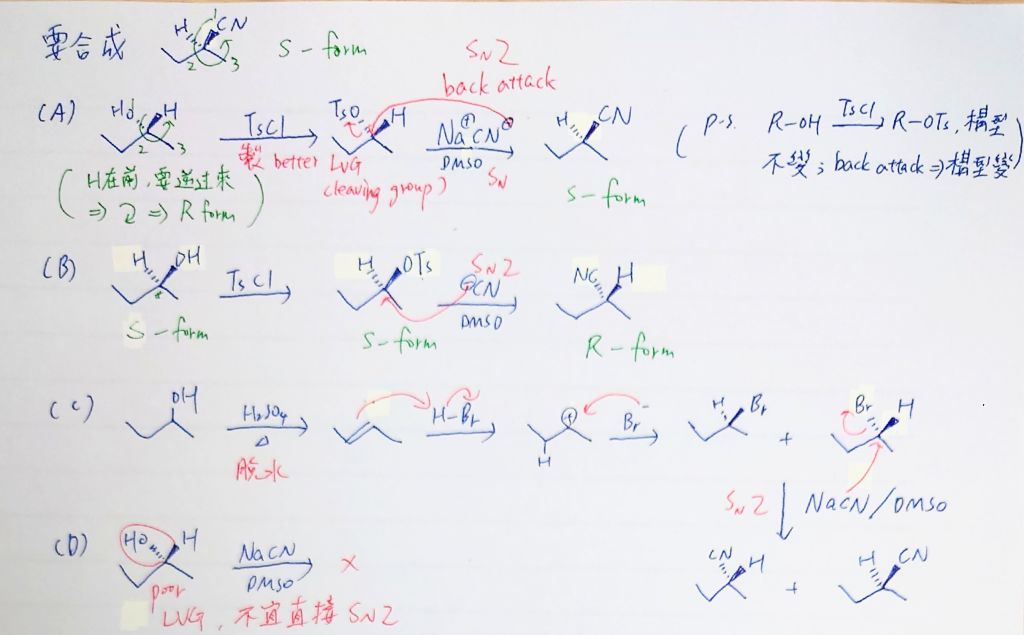 要合成 H CN 1 2 3 S-form
SN2
back attack
(A) HO H 2 3 TsCl 製 better LVG (leaving group) TsO H Na⊕CN⊖ DMSO SN H CN S-form
(H在前,要逆过來 ⇒ ⇒ R form)
(p.s. R-OH TsCl R-OTs, 構型
不變; back attack ⇒ 構型變)
(B) H OH * S-form TsCl H OTs S-form SN2 ⊖CN DMSO NC H R-form
(C) OH H2SO4 △ 脫水 H-Br ⊕ H Br⁻ H Br + Br H
SN2 NaCN/DMSO
CN H + H CN
(D) HO H NaCN DMSO ×
poor
LVG, 不宜直接 SN2